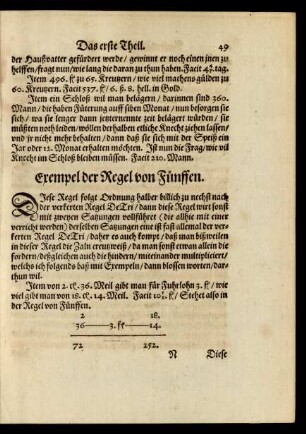 Das erste Theil. 49
der Haußvatter gefürdert werde / gewinnt er noch einen jnen zu
helffen / fragt nun / wie lang die daran zu thun haben. Facit tag.
Item 496. fl zu 65. Kreutzern / wie viel machens gülden zu
60. Kreutzern. Facit 537. fl / 6. ß. 8. hell. in Gold.
Item ein Schloß wil man belägern / darinnen sind 360.
Mann / die haben Füterung auff siben Monat / nun besorgen sie
sich / wa sie lenger dann jetzernennte zeit belägert würden / sie
müßten noth leiden / wöllen derhalben etliche Knecht ziehen lassen /
vnd jr nicht mehr behalten / dann daß sie sich mit der Speiß ein
Jar oder 12. Monat erhalten möchten. Ist nun die Frag / wie vil
Knecht im Schloß bleiben müssen. Facit 210. Mann.
Exempel der Regel von Fünffen.
DIese Regel folgt Ordnung halber billich zu nechst nach
der verkerten Regel DeTri / dann diese Regel wirt sonst
mit zweyen Satzungen vollführet (die allhie mit einer
verricht werden) derselben Satzungen eine ist fast allemal der ver-
kerten Regel DeTri / daher es auch kompt / daß man bißweilen
in dieser Regel die Zaln ereutzweiß / da man sonst etwan allein die
fordern / deßgleichen auch die hindern / miteinander multipliciert /
welches ich folgends baß mit Exempeln / dann blossen worten / dar-
thun wil.
Item von 2. 36. Meil gibt man für Fuhrlohn 3. fl / wie
viel gibt man von 18. 14. Meil. Facit fl / Stehet also in
der Regel von Fünffen.
2 18.
36 3. fl 14.
72 252.
N Diese